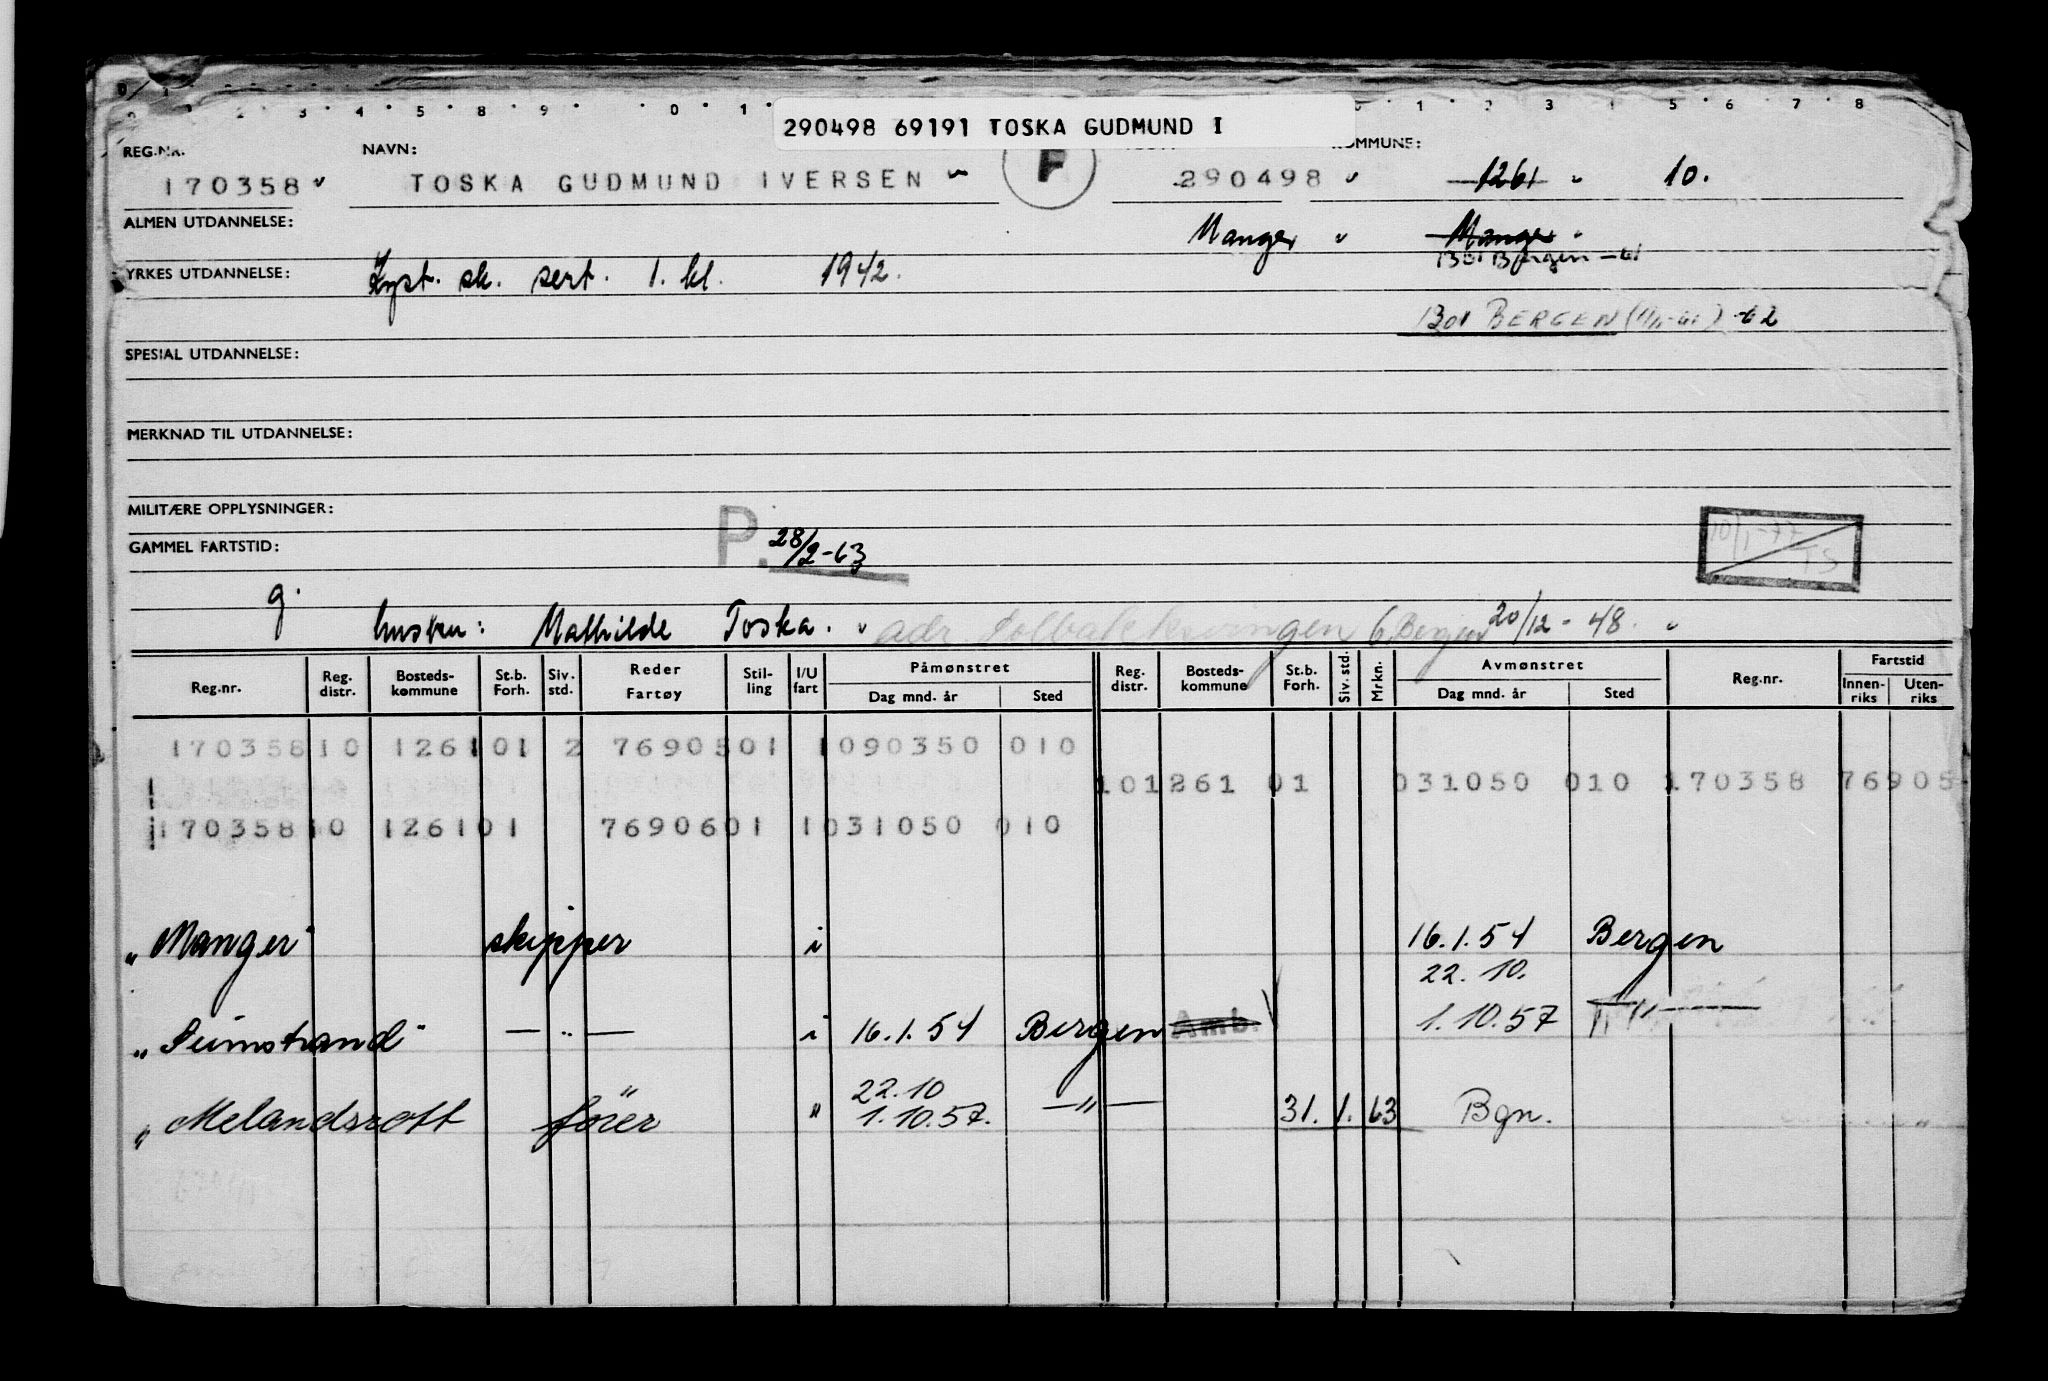 290498 69191 TOSKA GUDMUND I
REG.NR. NAVN: KOMMUNE:
170358 TOSKA GUDMUND IVERSEN F 290498 1261 10.
ALMEN UTDANNELSE: Manger Manger
1301 Bergen -61
YRKES UTDANNELSE: Kyst. sk. sert. 1. kl. 1942.
1301 BERGEN (1/11-61) -62
SPESIAL UTDANNELSE:
MERKNAD TIL UTDANNELSE:
MILITÆRE OPPLYSNINGER:
GAMMEL FARTSTID: P. 28/2-63 10/1-77 TS
g. hustru: Mathilde Toska. adr. 6 Bergen 20/12-48.
Reg.nr. Reg. distr. Bosteds-kommune St.b. Forh. Siv. std. Reder Fartøy Stil-ling I/U fart Påmønstret Dag mnd. år Sted Reg. distr. Bosteds-kommune St.b. Forh. Siv. std. Mrkn. Avmønstret Dag mnd. år Sted Reg.nr. Fartstid Innen-riks Uten-riks
170358 10 1261 01 2 7690501 1090350 010
101261 01 031050 010 170358 76905
170358 10 1261 01 7690601 1031050 010
"Manger" skipper i 16.1.54 Bergen
22.10.
"Seimstrand" — " — i 16.1.54 Bergen Amb. 1.10.57 — " —
22.10
"Melandsrott förer " 1.10.57. — " — 31.1.63 Bgn.